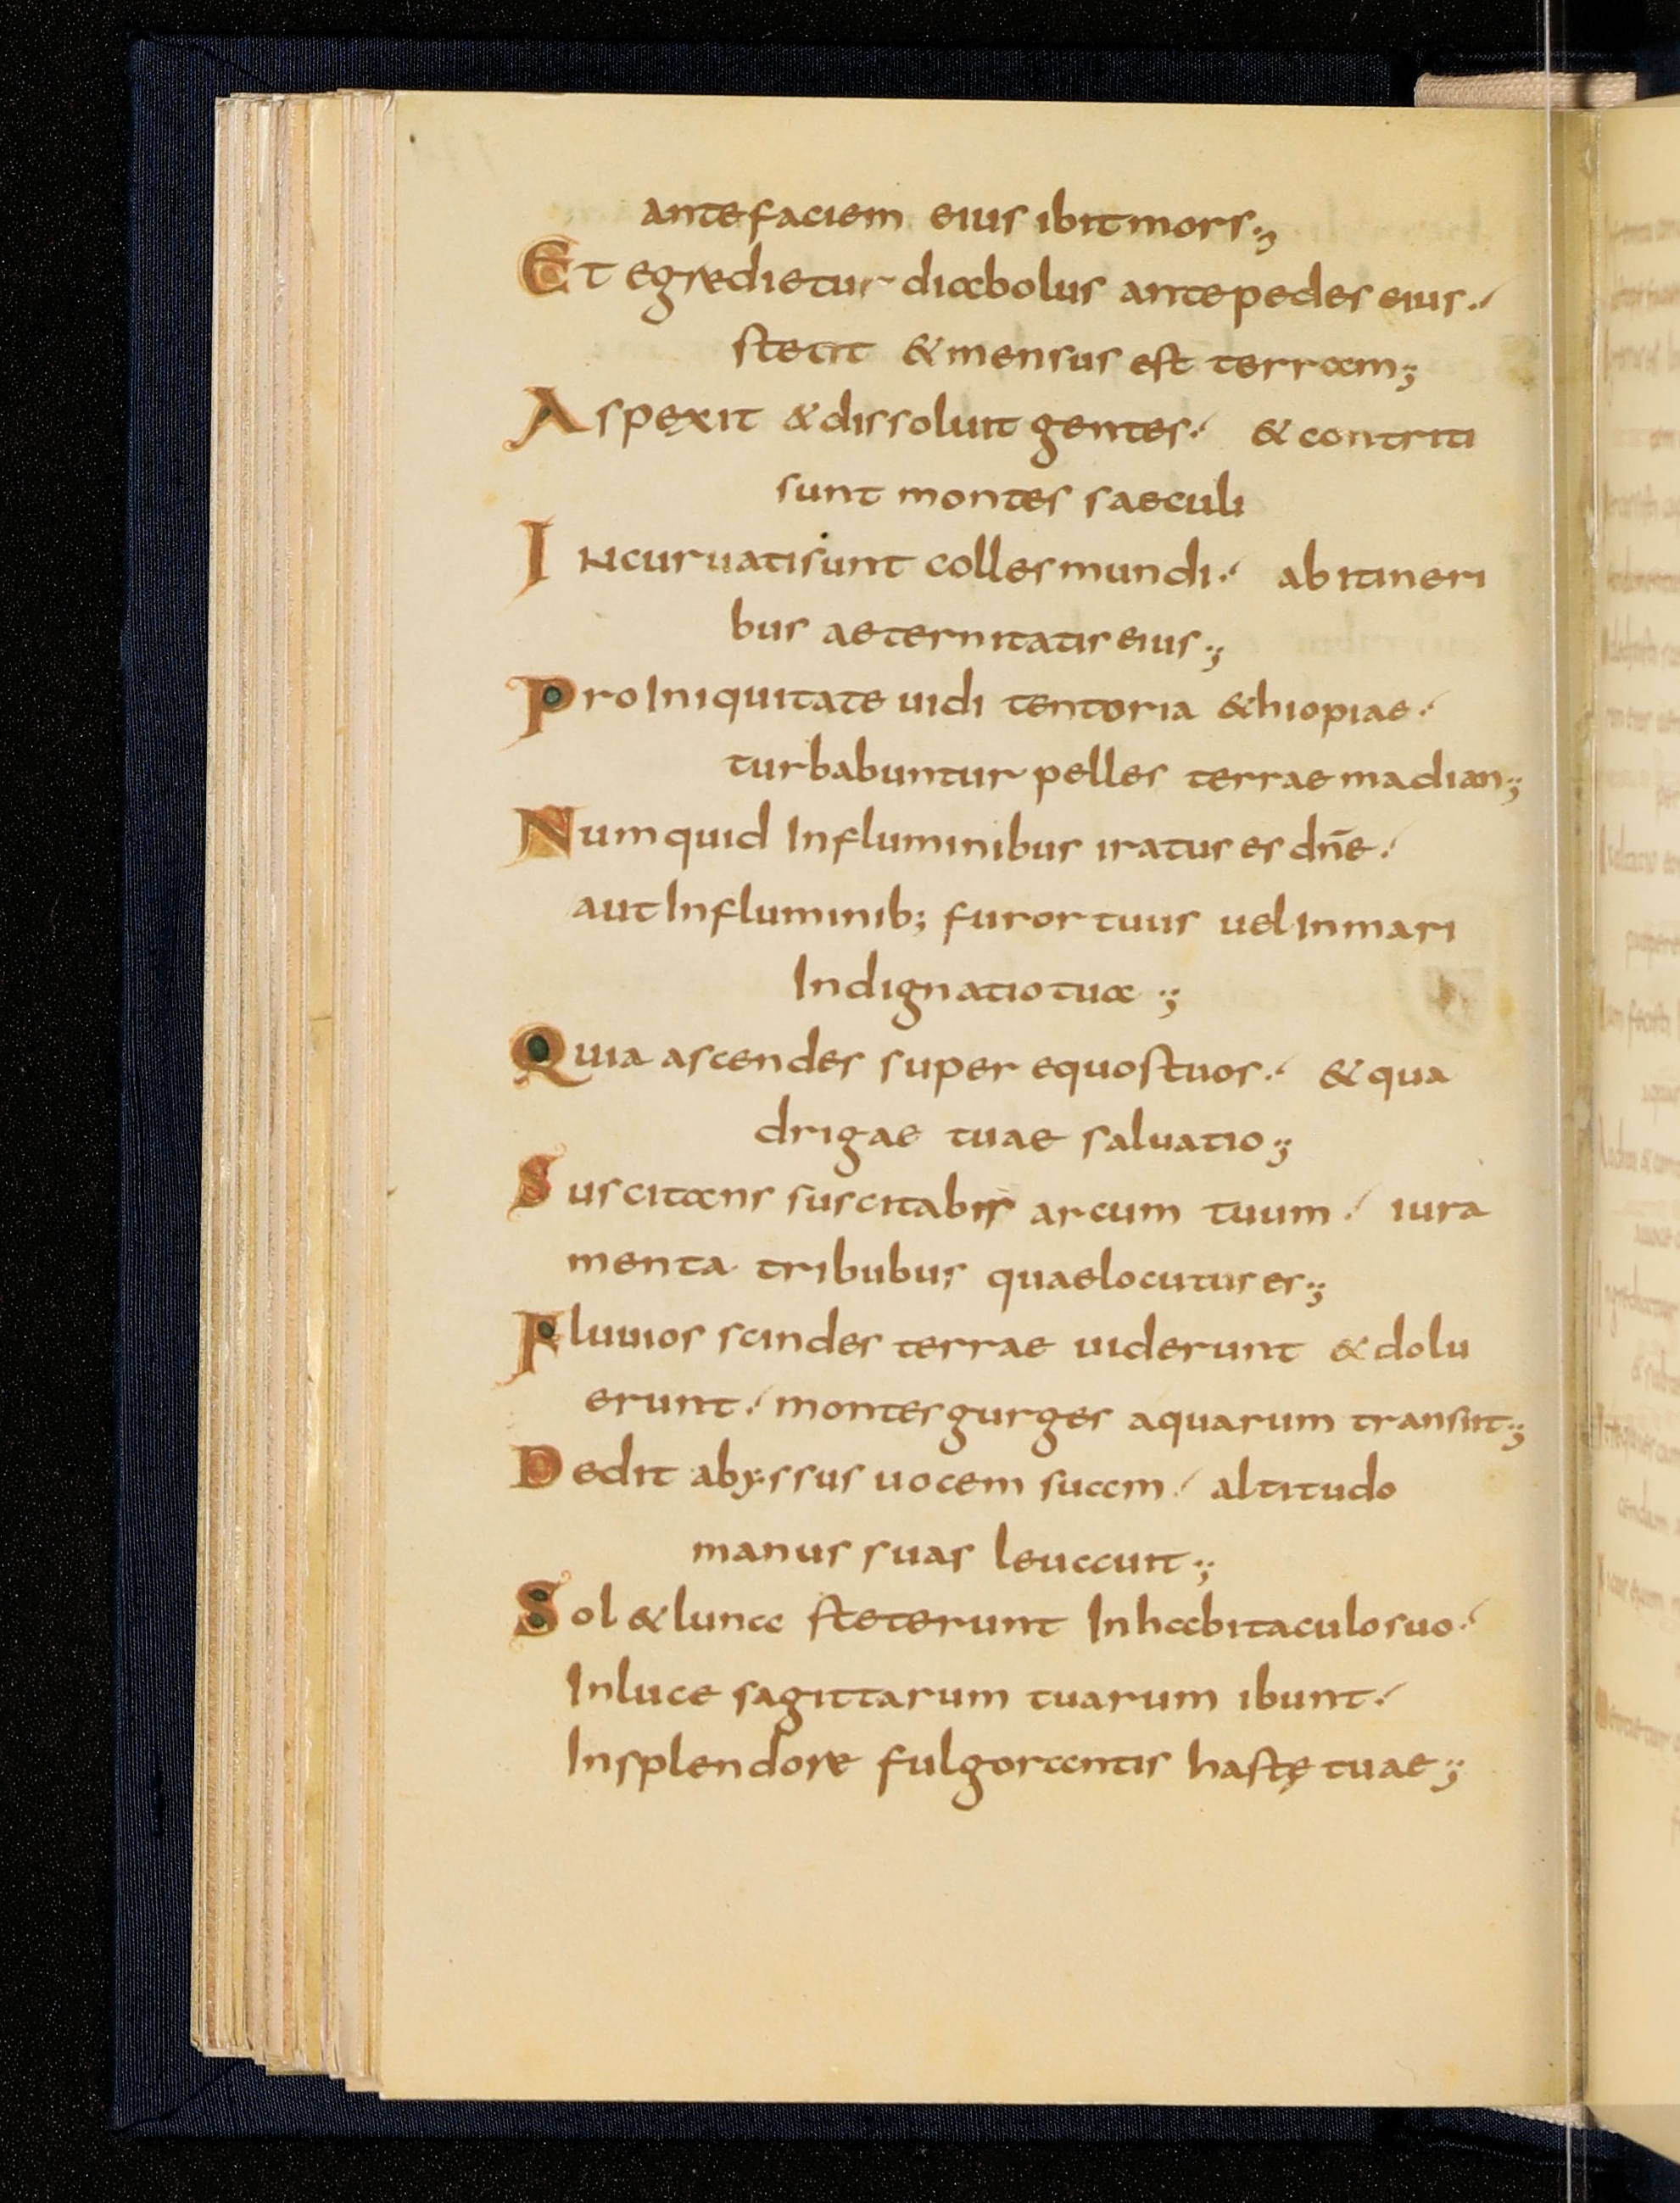 ante faciem eius ibit mors;
Et egredietur diabolus ante pedes eius.
stetit & mensus est terram;
Aspexit & dissoluit gentes. & contriti
sunt montes saeculi
Incuruati sunt colles mundi. ab itineri
bus aeternitatis eius;
Pro Iniquitate uidi tentoria &hiopiae.
turbabuntur pelles terrae madian;
Numquid In fluminibus iratus es dn̄e.
aut In fluminib; furor tuus uel in mari
Indignatio tua;
Quia ascendes super equos tuos. & qua
drigae tuae saluatio;
Suscitans suscitabis arcum tuum. iura
menta tribubus quae locutus es;
Fluuios scindes terrae uiderunt & dolu
erunt. montes gurges aquarum transiit;
Dedit abyssus uocem suam. altitudo
manus suas leuauit;
Sol & luna steterunt In habitaculo suo.
In luce sagittarum tuarum ibunt.
In splendore fulgorantis hastę tuae;